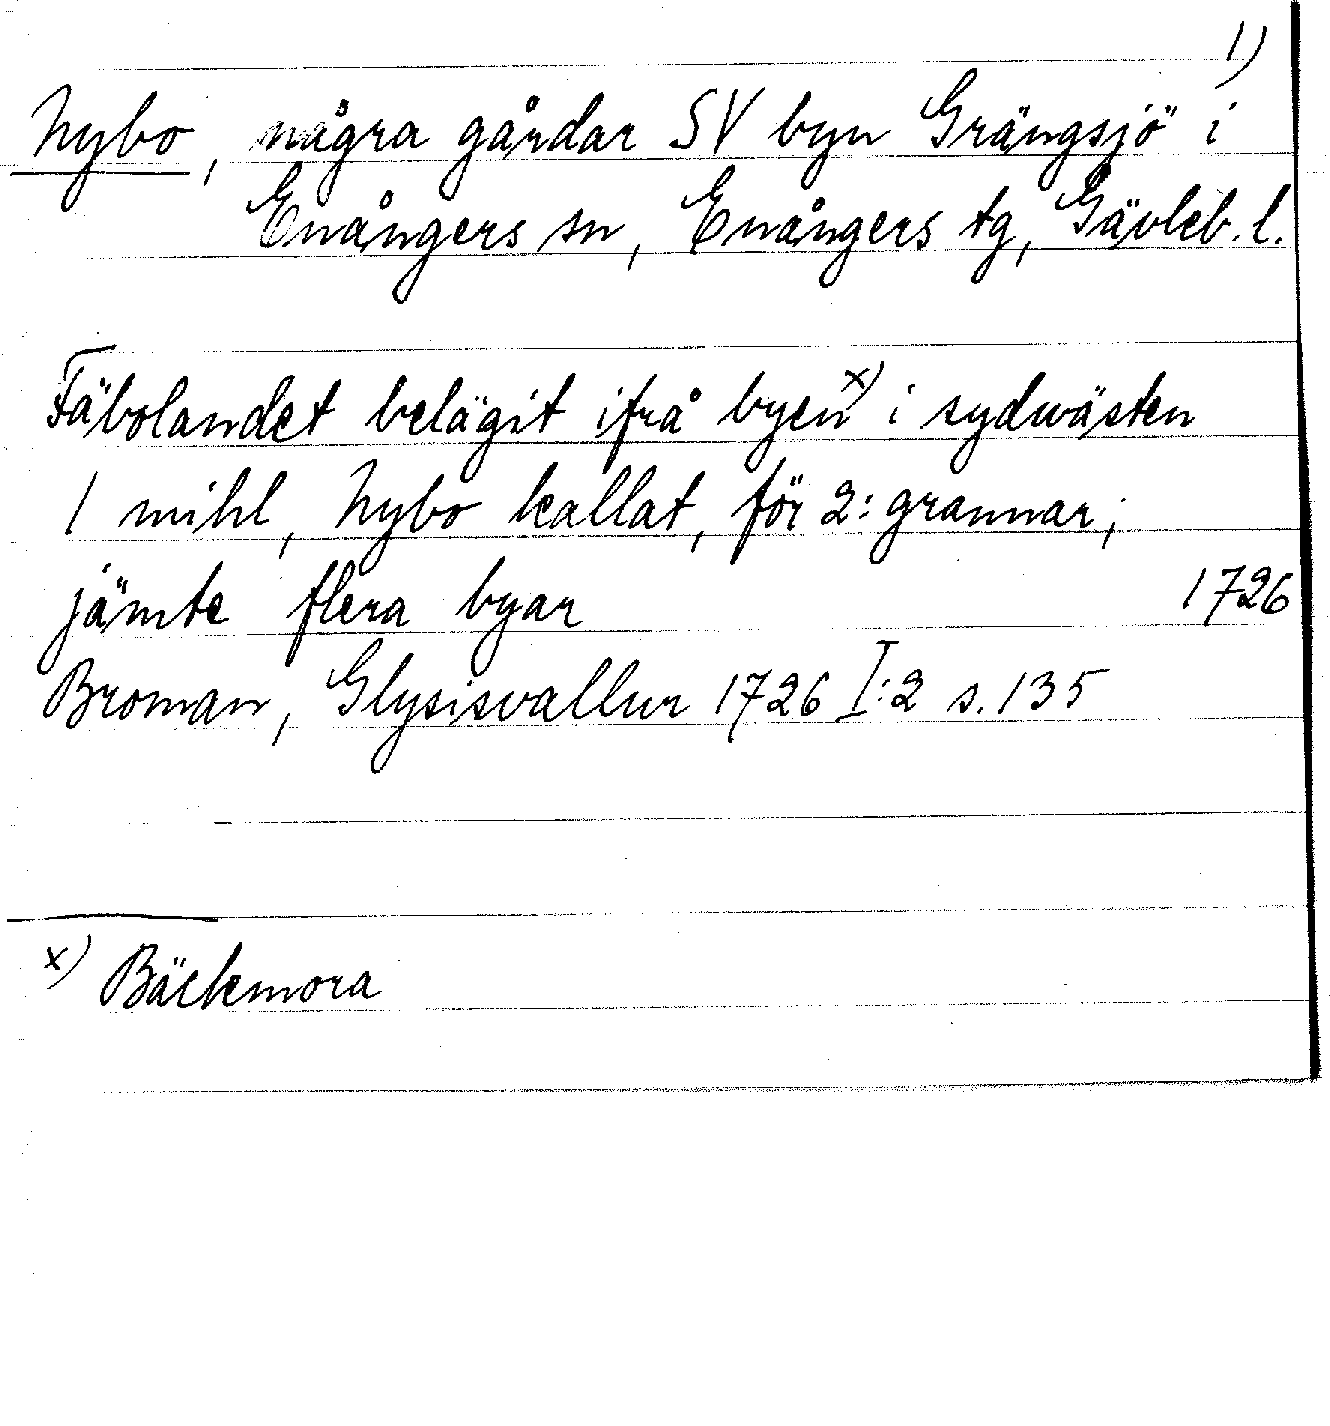 1)
Nybo, några gårdar SV byn Grängsjö i
Enångers sn, Enångers tg, Gävleb. l.
Fäbolandet belägit ifrå byen x) i sydwästen
1 mihl, Nybo kallat, för 2: grannar;
jämte flera byar 1726
Broman, Glysisvallur 1726 I:2 s. 135
x) Bäckmora